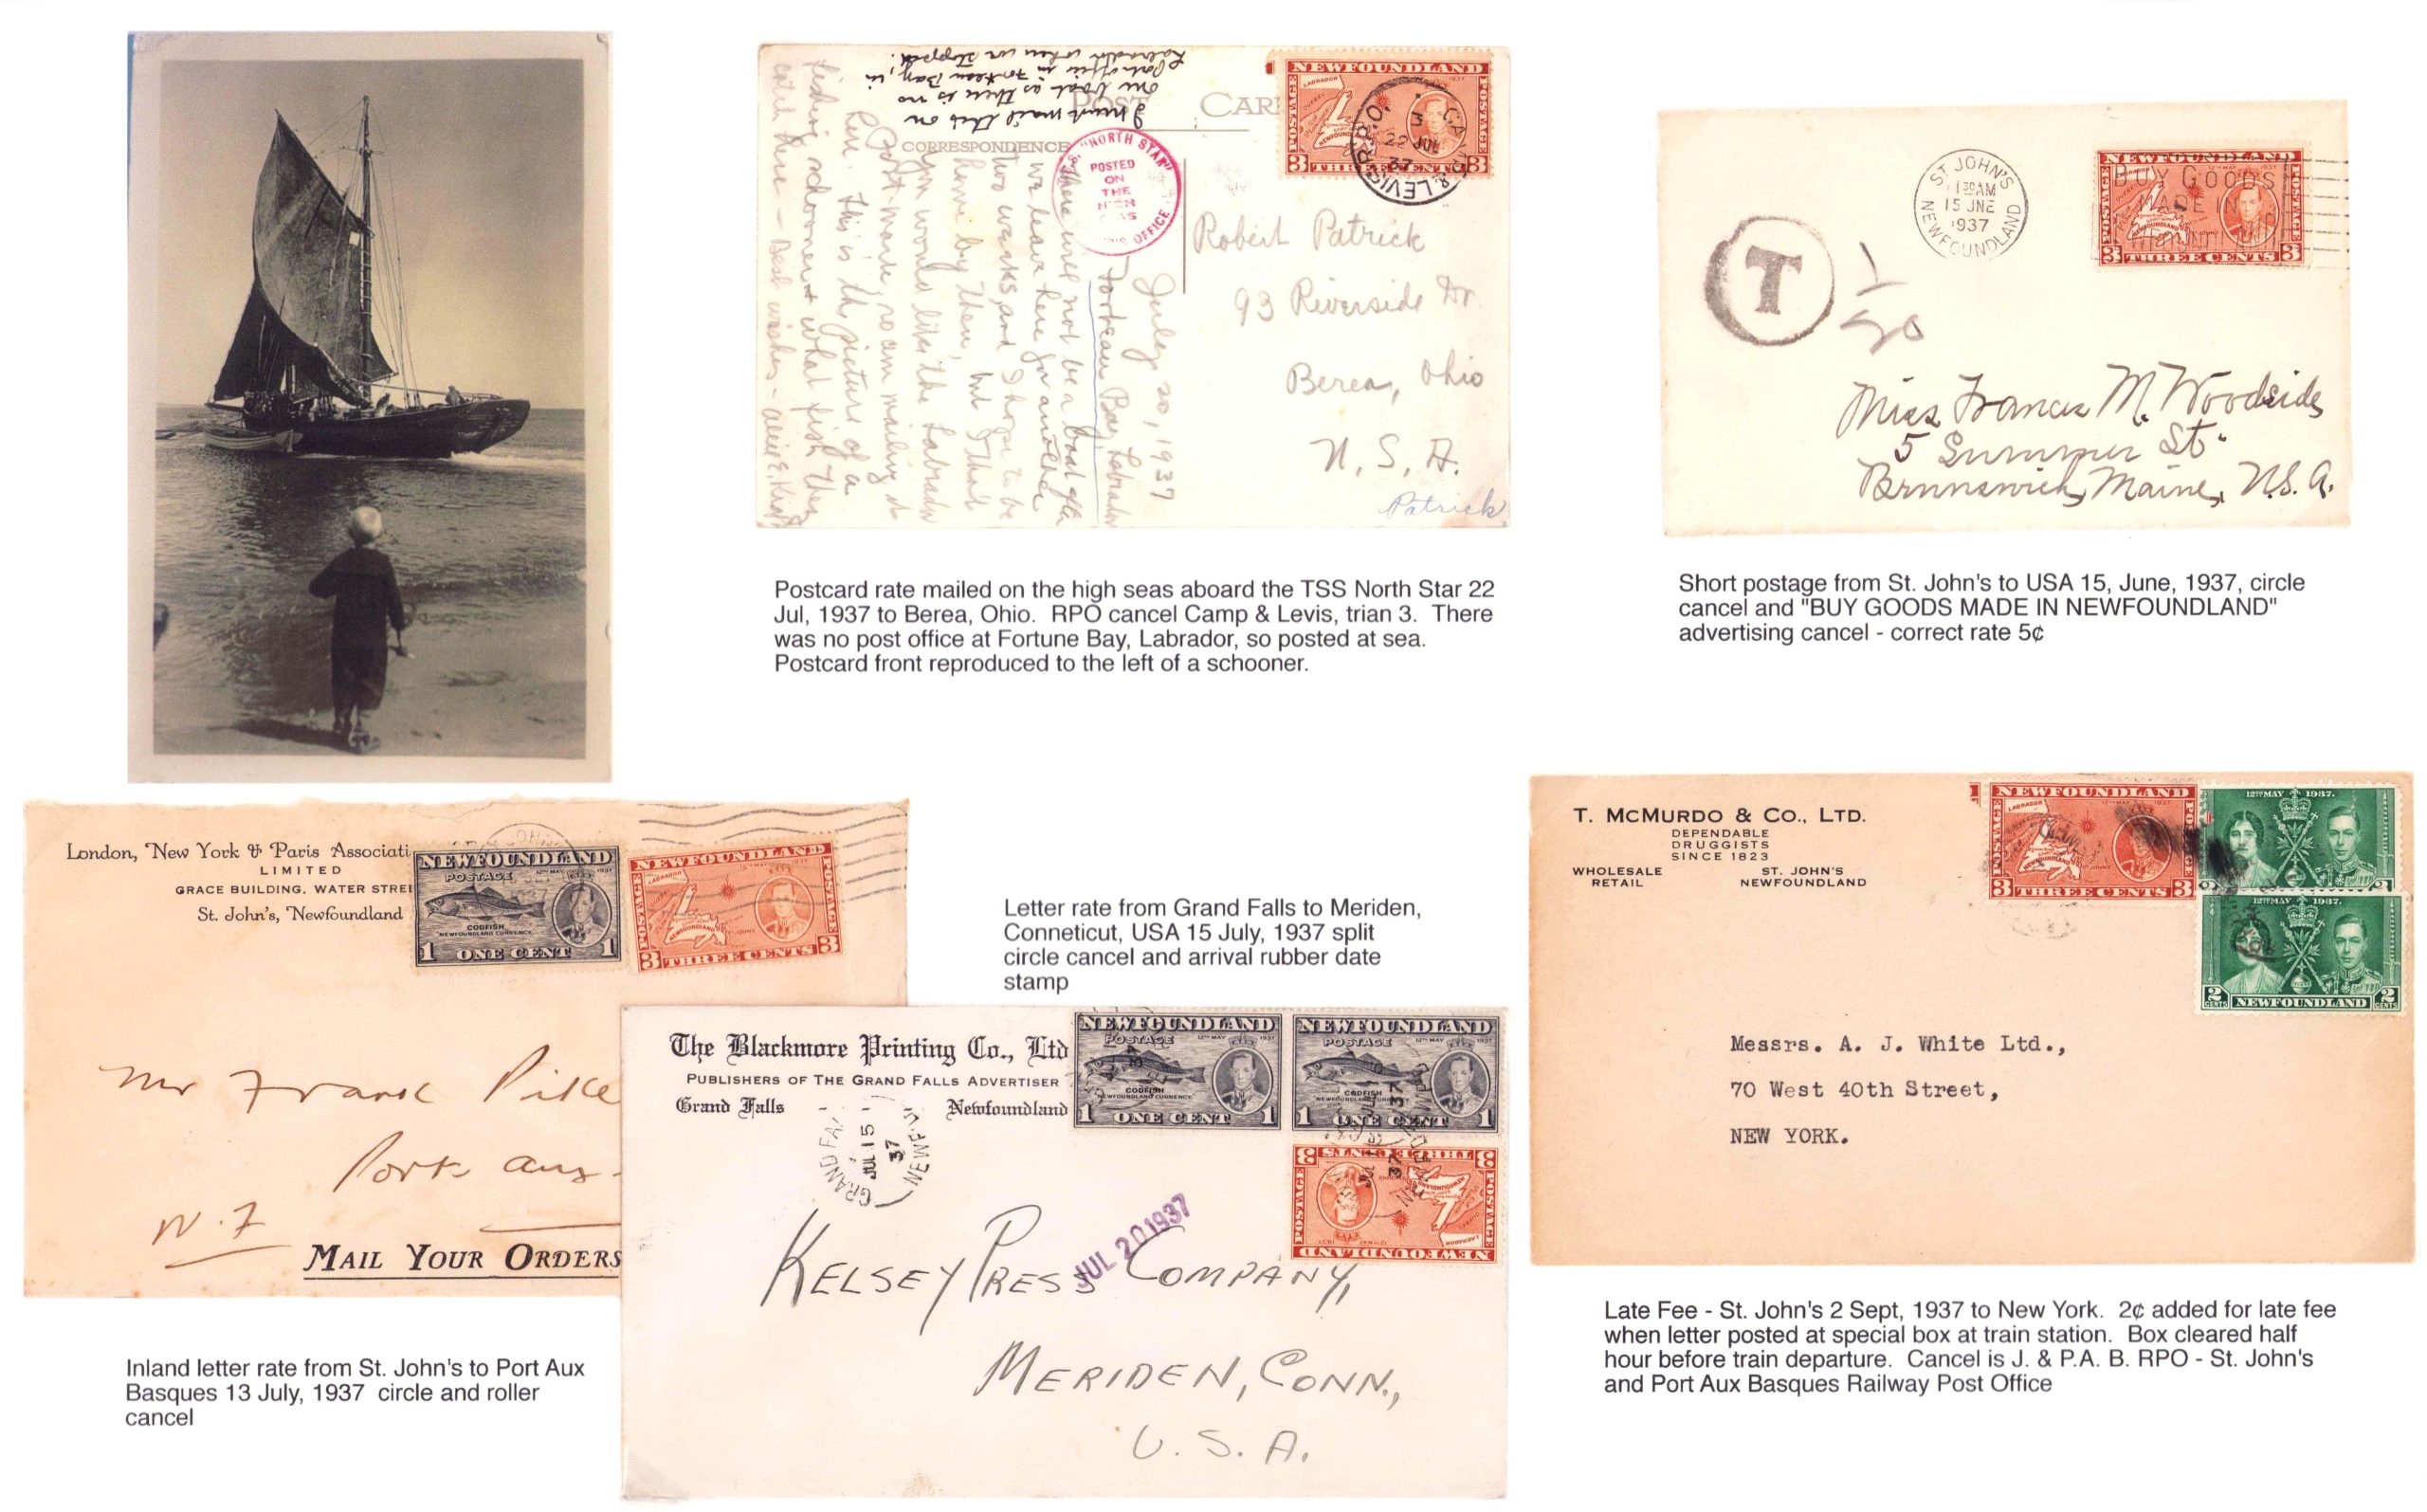 I must mail this on
one boat as there is no
Post office in Forteau Bay, in
Labrador when we stopped.
POST CARD
CORRESPONDENCE
"NORTH STAR"
POSTED
ON
THE
HIGH
SEAS
OFFICE
July 20, 1937
Forteau Bay, Labrador
There will not be a boat after
we leave here for another
two weeks, and I hope to be
home by then, but I that
you would like the Labrador
Post-mark, so am mailing it
here. This is the picture of a
fishing schooner & what fish they
catch here - Best wishes -
NEWFOUNDLAND
LABRADOR
1937
POSTAGE
POSTAGE
3 THREE CENTS 3
CAMP. & LEVIS R.P.O.
3
22 JUL
37
Robert Patrick
93 Riverside Dr.
Berea, Ohio
U. S. A.
Patrick
Postcard rate mailed on the high seas aboard the TSS North Star 22
Jul, 1937 to Berea, Ohio. RPO cancel Camp & Levis, trian 3. There
was no post office at Fortune Bay, Labrador, so posted at sea.
Postcard front reproduced to the left of a schooner.
ST. JOHN'S
11 30 AM
15 JNE
1937
NEWFOUNDLAND
NEWFOUNDLAND
BUY GOODS
MADE IN
POSTAGE
POSTAGE
3 THREE CENTS 3
T
1
Miss Frances M. Woodside
5 Summer St.
Brunswick, Maine, U.S.A.
Short postage from St. John's to USA 15, June, 1937, circle
cancel and "BUY GOODS MADE IN NEWFOUNDLAND"
advertising cancel - correct rate 5¢
London, New York & Paris Associati
LIMITED
GRACE BUILDING, WATER STREE
St. John's, Newfoundland
NEWFOUNDLAND
POSTAGE 12TH MAY 1937
CODFISH
NEWFOUNDLAND CURRENCY
1 ONE CENT 1
NEWFOUNDLAND
LABRADOR
POSTAGE
POSTAGE
3 THREE CENTS 3
Mr Frank Pike
Port aux-
N.F
MAIL YOUR ORDERS
Inland letter rate from St. John's to Port Aux
Basques 13 July, 1937 circle and roller
cancel
Letter rate from Grand Falls to Meriden,
Conneticut, USA 15 July, 1937 split
circle cancel and arrival rubber date
stamp
The Blackmore Printing Co., Ltd
PUBLISHERS OF THE GRAND FALLS ADVERTISER
Grand Falls Newfoundland
GRAND FA
JUL 15
37
NEWF'D
NEWFOUNDLAND
POSTAGE 12TH MAY 1937
CODFISH
NEWFOUNDLAND CURRENCY
1 ONE CENT 1
NEWFOUNDLAND
POSTAGE 12TH MAY 1937
CODFISH
NEWFOUNDLAND CURRENCY
1 ONE CENT 1
NEWFOUNDLAND
LABRADOR
POSTAGE
POSTAGE
3 THREE CENTS 3
JUL 20 1937
KELSEY PRESS COMPANY,
MERIDEN, CONN.,
U. S. A.
T. MCMURDO & CO., LTD.
DEPENDABLE
DRUGGISTS
SINCE 1823
WHOLESALE
RETAIL
ST. JOHN'S
NEWFOUNDLAND
NEWFOUNDLAND
LABRADOR
POSTAGE
3 THREE CENTS 3
12TH MAY 1937.
2
12TH MAY 1937.
2 CENTS NEWFOUNDLAND 2 CENTS
Messrs. A. J. White Ltd.,
70 West 40th Street,
NEW YORK.
Late Fee - St. John's 2 Sept, 1937 to New York. 2¢ added for late fee
when letter posted at special box at train station. Box cleared half
hour before train departure. Cancel is J. & P.A. B. RPO - St. John's
and Port Aux Basques Railway Post Office